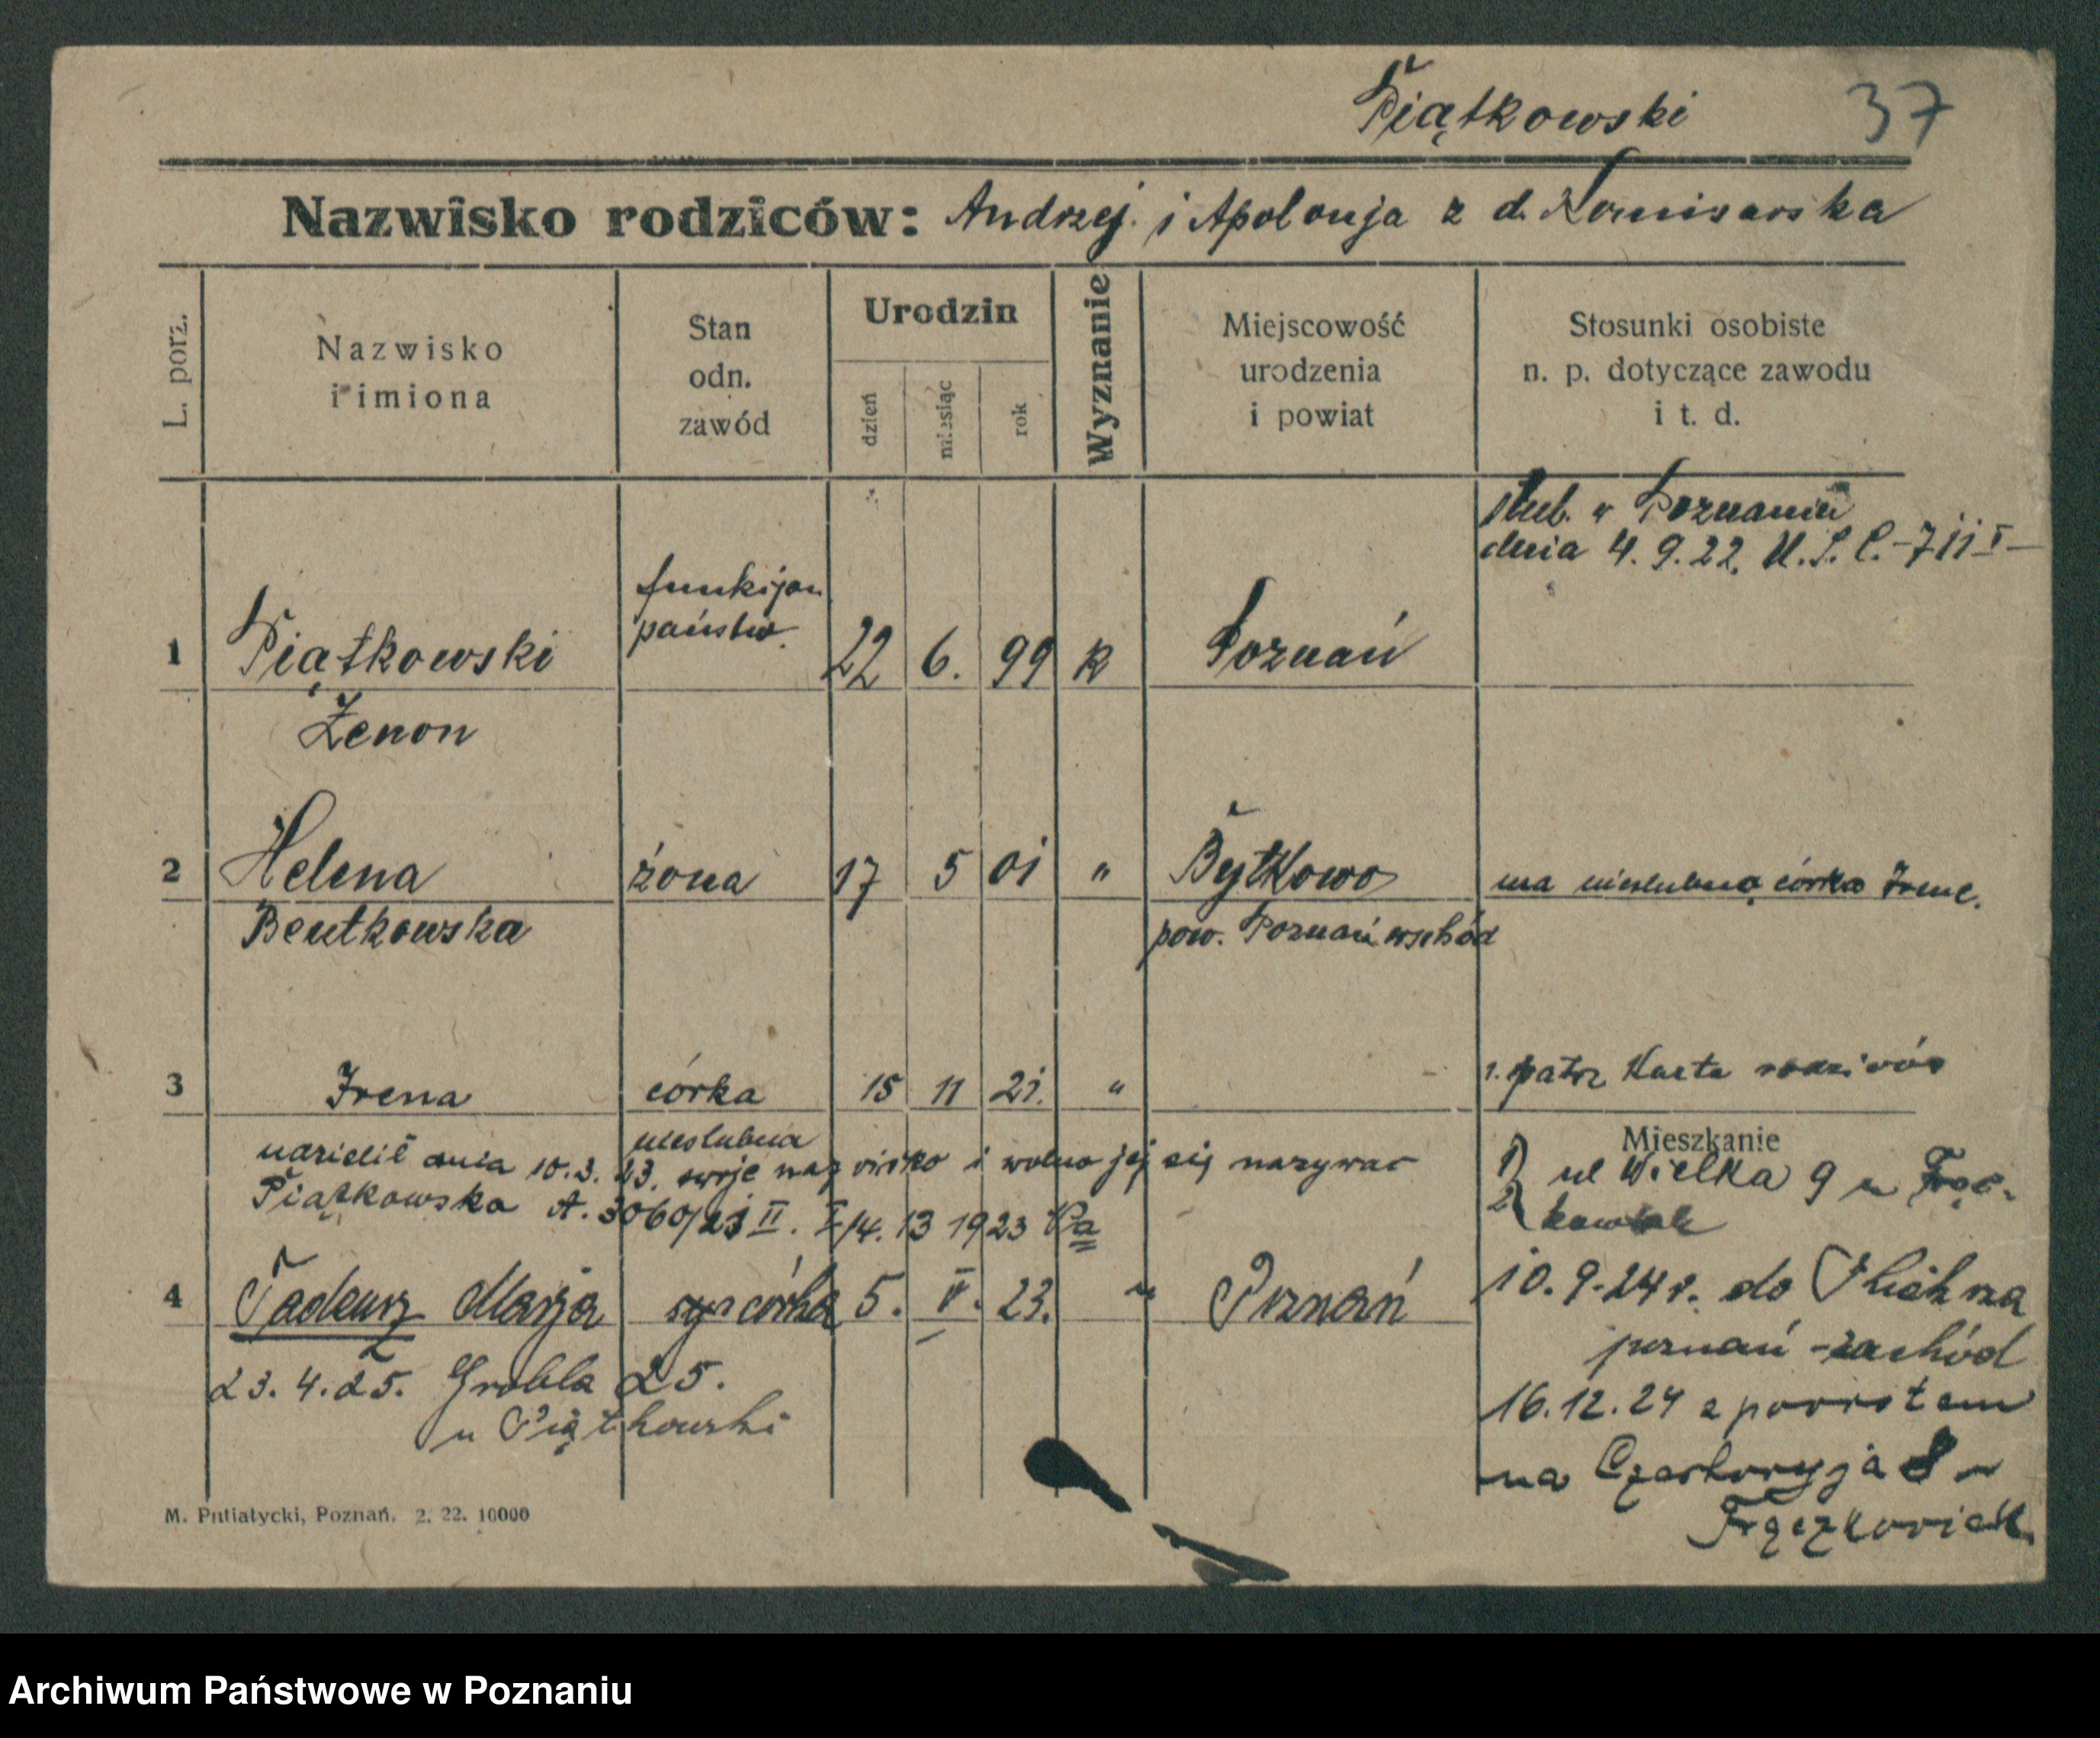 Piątkowski 37
Nazwisko rodziców: Andrzej i Apolonja z d. Komisarska
L. porz.
Nazwisko
i imiona
Stan
odn.
zawód
Urodzin
dzień
miesiąc
rok
Wyznanie
Miejscowość
urodzenia
i powiat
Stosunki osobiste
n. p. dotyczące zawodu
i t. d.
ślub. w Poznaniu
dnia 4. 9. 22. U. S. C. - 711 I -
funkcjon
państw.
1 Piątkowski 22 6. 99 k Poznań
Zenon
2 Helena żona 17 5 01 " Bytkowo ma nieślubną córkę Irenę.
Bentkowska pow. Poznań wschód
3 Irena córka 15 11 21. " 1. patrz Karta rodziców
nieślubna
udzielił dnia 10. 3. 23. swoje nazwisko i wolno jej się nazywać
Piątkowska A. 3060/23 II. 1923
Mieszkanie
1) ul Wielka 9 u Frąc-
2) kowiak
4 Tadeusz Marja syn córka 5. V. 23. " Poznań
10. 9. 24 r. do
poznań - zachód
16. 12. 24 z powrotem
na Czartoryja 8 u
Frączkowiak
23. 4. 25. Grobla 25.
u Piątkowski
M. Putiatycki, Poznań. 2. 22. 10000
Archiwum Państwowe w Poznaniu